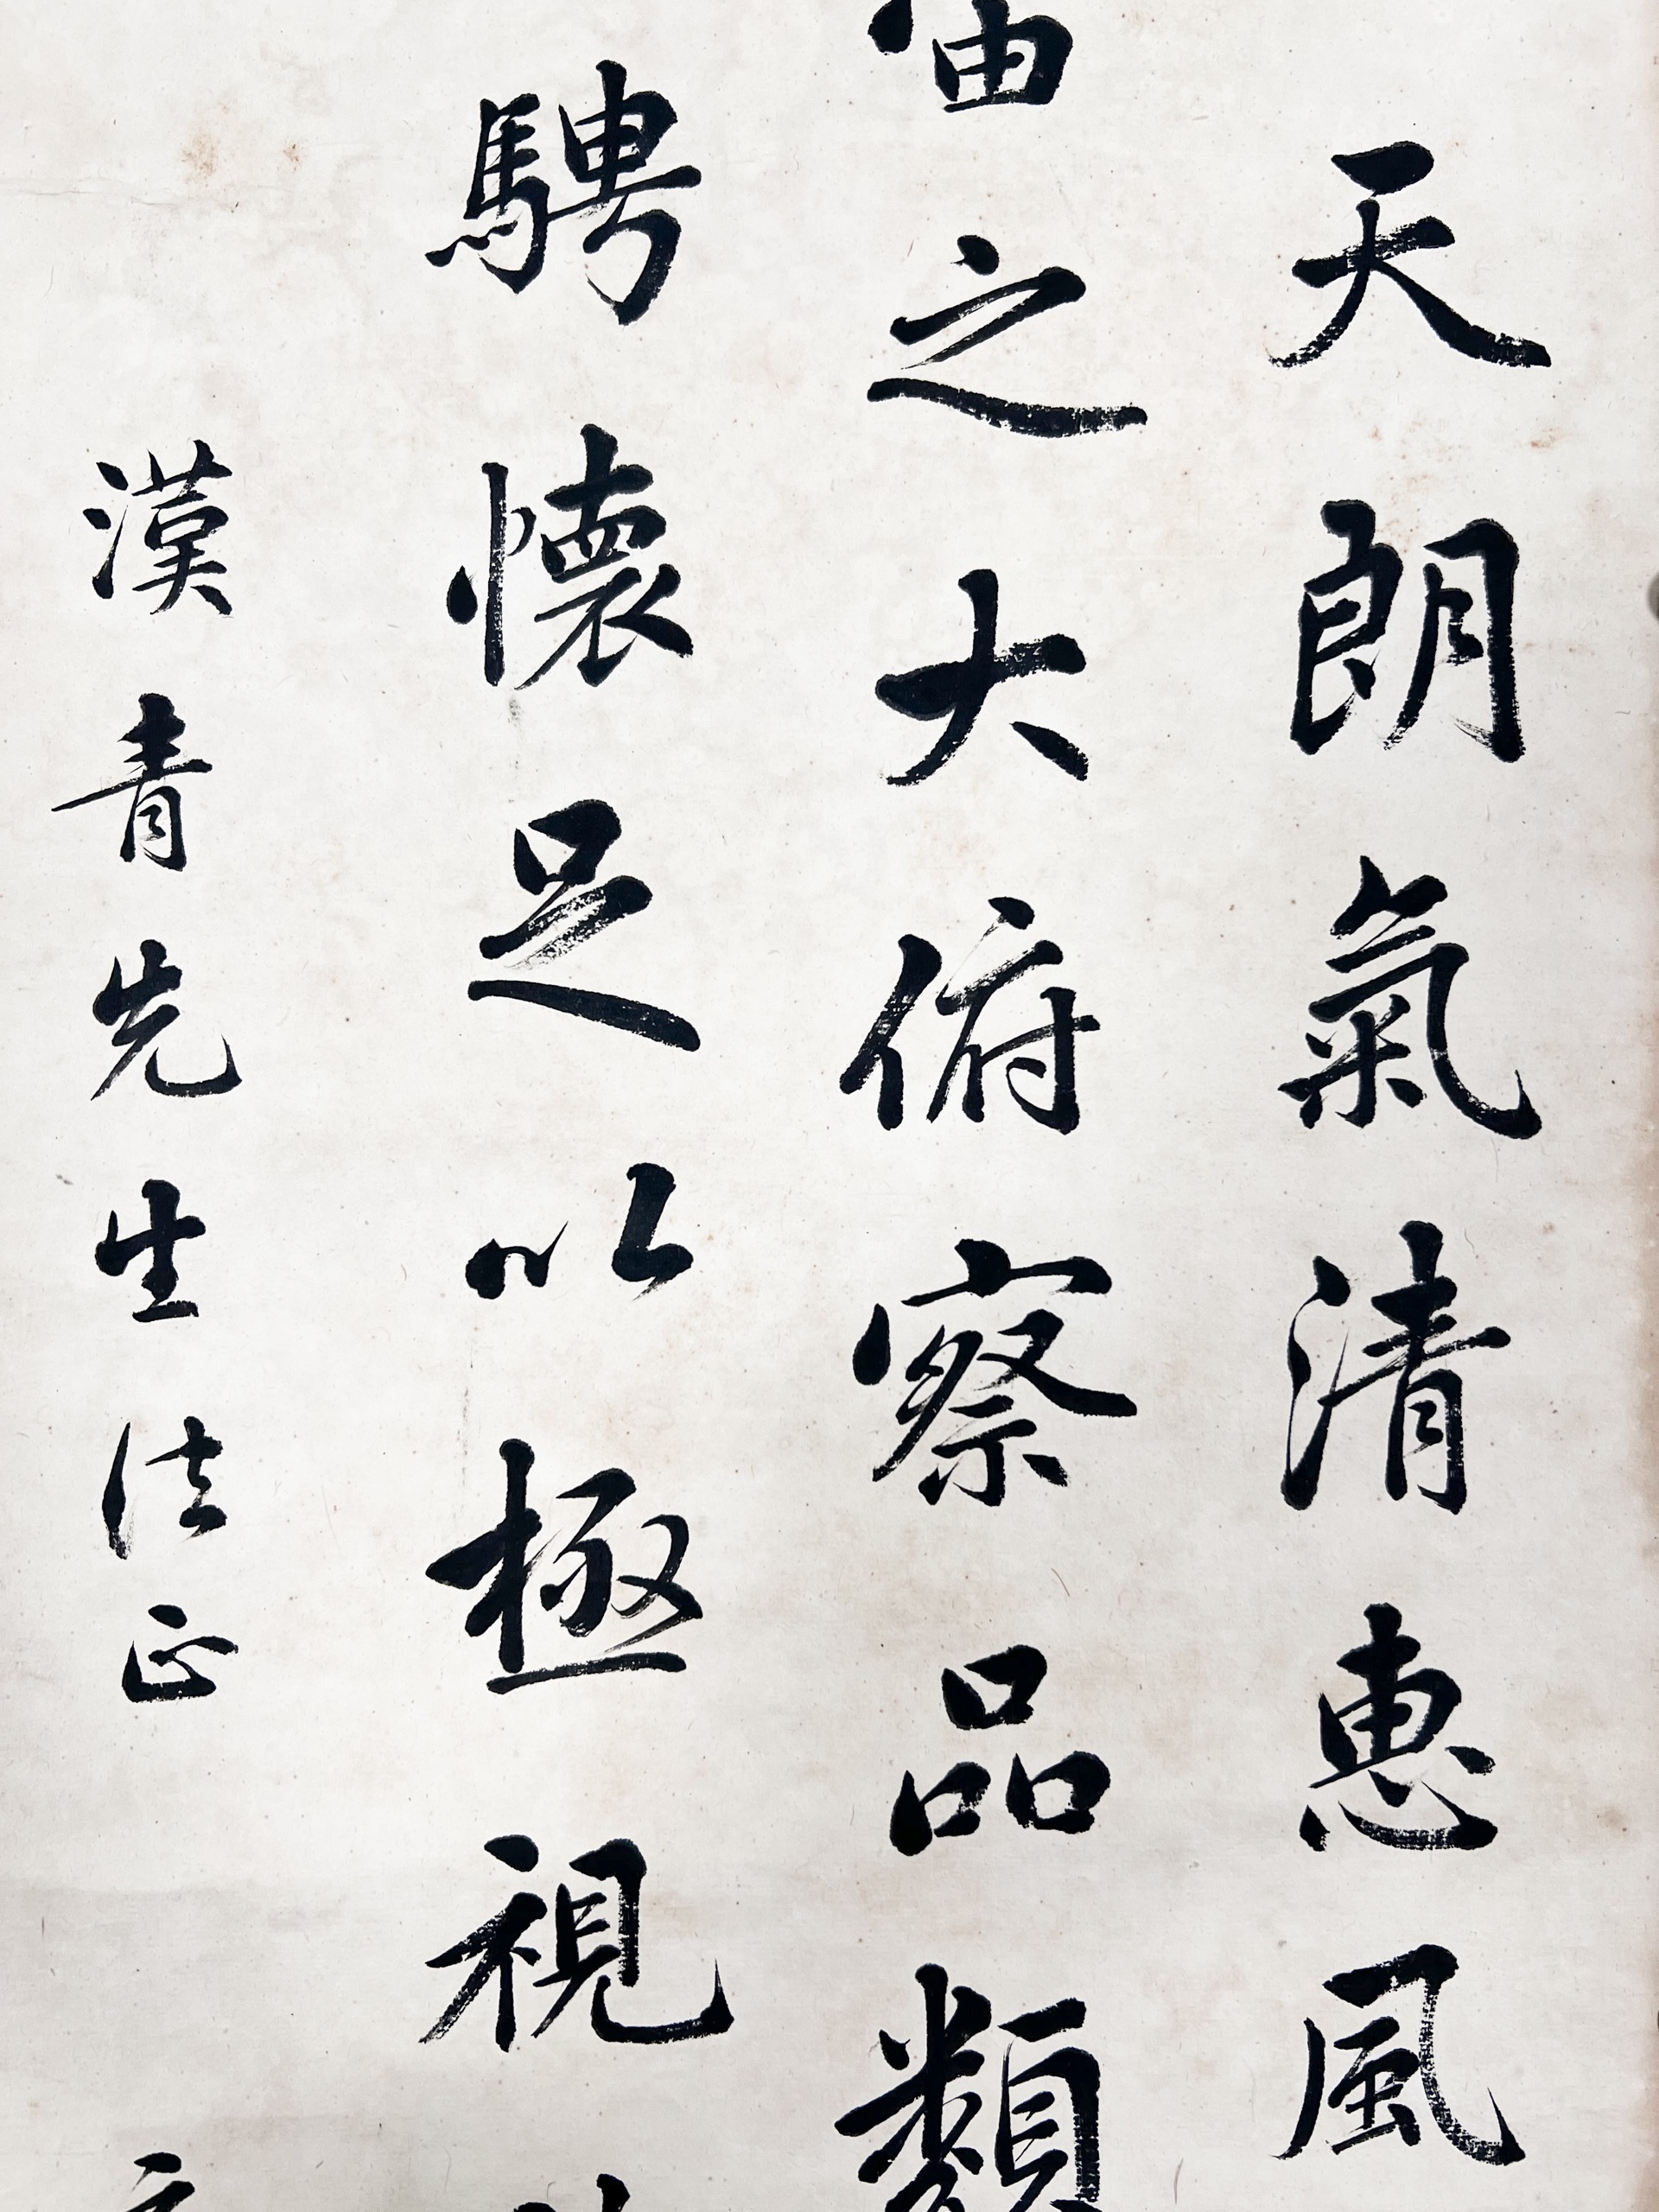 天朗氣清惠風
宙之大俯察品類
騁懷足以極視
漢青先生法正